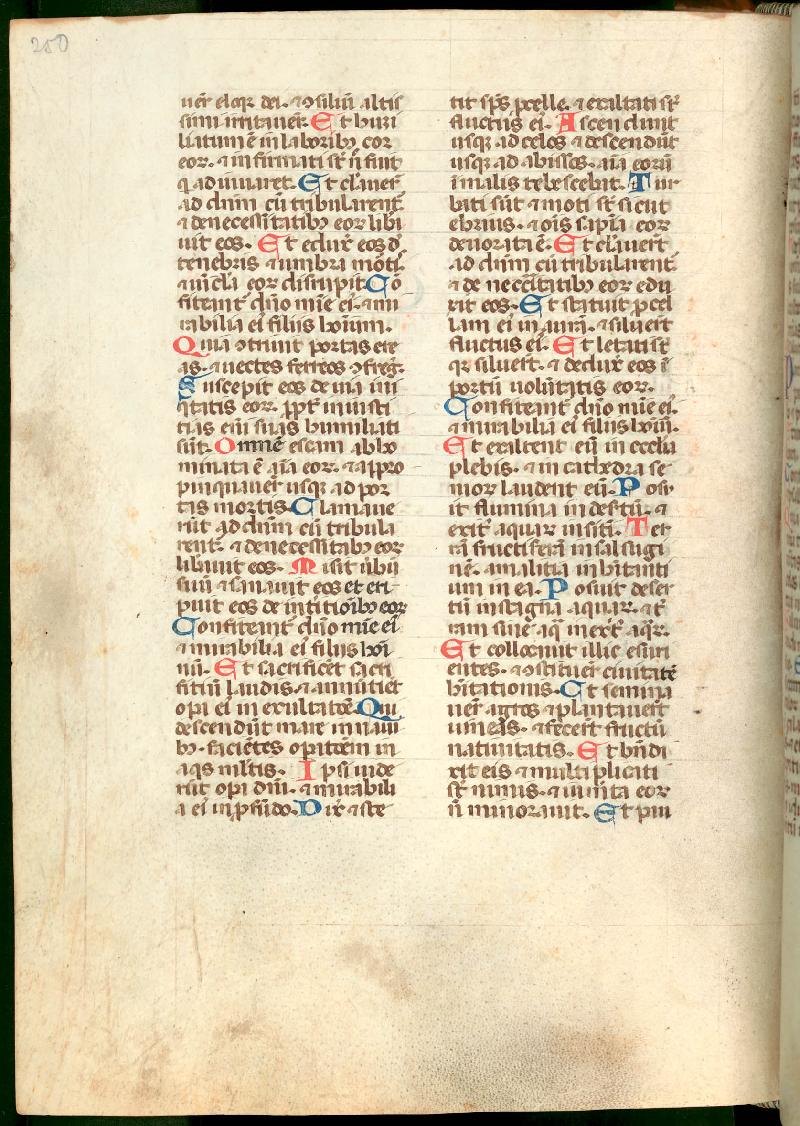 250
uer̄ eloq̄ꝛ dei. ⁊ ꝯsiliū altis
simi irritauer̄. Et humi
liatum ē in laboribꝫ cor
eoꝝ. ⁊ infirmati st̄ n̄ fuit
q̄ adiuuaret. Et cl̄auer̄
ad dn̄m cū tribularent̉
⁊ de necessitatibꝫ eoꝝ libe
uit eos. Et edux̄ eos d̓
tenebris ⁊ umbra mōti.
⁊ uīcla eoꝝ disrupit. Cō
fiteant̉ dn̄o mīe ei. ⁊ mi
rabilia ei filiis hoīum.
Quia ꝯtriuit portas ere
as. ⁊ uectes ferreos ꝯfreg̉.
Suscepit eos de uia ini
q̄tatis eoꝝ. ꝓpt̉ iniusti
tias eni suas humiliati
sūt. Omnē escam abho
minata ē aīa eoꝝ. ⁊ appro
pinquauer̄ usqꝫ ad por
tas mortis. Clamaue
rūt ad dn̄m cū tribula
rent̉. ⁊ de necessitatibꝫ eoꝝ
liberauit eos. Misit ūbū
suū ⁊ sanauit eos et eri
puit eos de intitiōibꝫ eoꝝ
Confiteant̉ dn̄o mīe ei
⁊ mirabilia ei filiis hoī
nū. Et sacrificēt sacri
fitiū laudis. ⁊ annūtiēt
opa ei in exultatōe. Qui
descendūt mare in naui
bꝫ. faciētes opatōem in
aqs mltis. Ipsi uide
rūt opa dn̄i. ⁊ mirabili
a ei in ꝓfūdo. Dix̄ ⁊ ste
tit sp̄s ꝓcelle. ⁊ exaltati st̄
fluctus ei. Ascendunt
usqꝫ ad celos ⁊ descendūt
usqꝫ ad abissos. aīa eorū
ī malis tabescebat. Tur
bati sūt ⁊ moti st̄ sicut
ebrius. ⁊ oīs sapīa eoꝝ
deuorata ē. Et cl̄auer̄t
ad dn̄m cū tribularent̉.
⁊ de necc̄itatibꝫ eoꝝ edu
xit eos. Et statuit ꝓcel
lam ei in aurā. ⁊ siluer̄t
fluctus ei. Et letati st̄
qꝛ siluer̄t. ⁊ dedux̄ eos ī
portū volūtatis eoꝝ.
Confiteant̉ dn̄o mīe ei.
⁊ mirabilia ei filiis hoīū.
Et exaltent eū in ecclīa
plebis. ⁊ in cathedra se
nioꝝ laudent eū. Posu
it flumina in desertū. ⁊
exit̉ aquaꝝ in sitī. Ter
rā fructiferā in salsugi
nē. a malitia inhitanti
um in ea. Posuit deser
tū in stagna aquaꝝ. ⁊ t̉
ram sine aq̄ in exit̉ aq̄ꝝ.
Et collocauit illic esuri
entes. ⁊ ꝯstituer̄ ciuitatē
hītationis. Et semina
uer̄ agros ⁊ plantauer̄t
uineas. ⁊ fecer̄t fructū
natiuitatis. Et bn̄di
xit eis ⁊ multiplicati
st̄ nimis. ⁊ iumenta eoꝝ
n̄ minorauit. Et pau